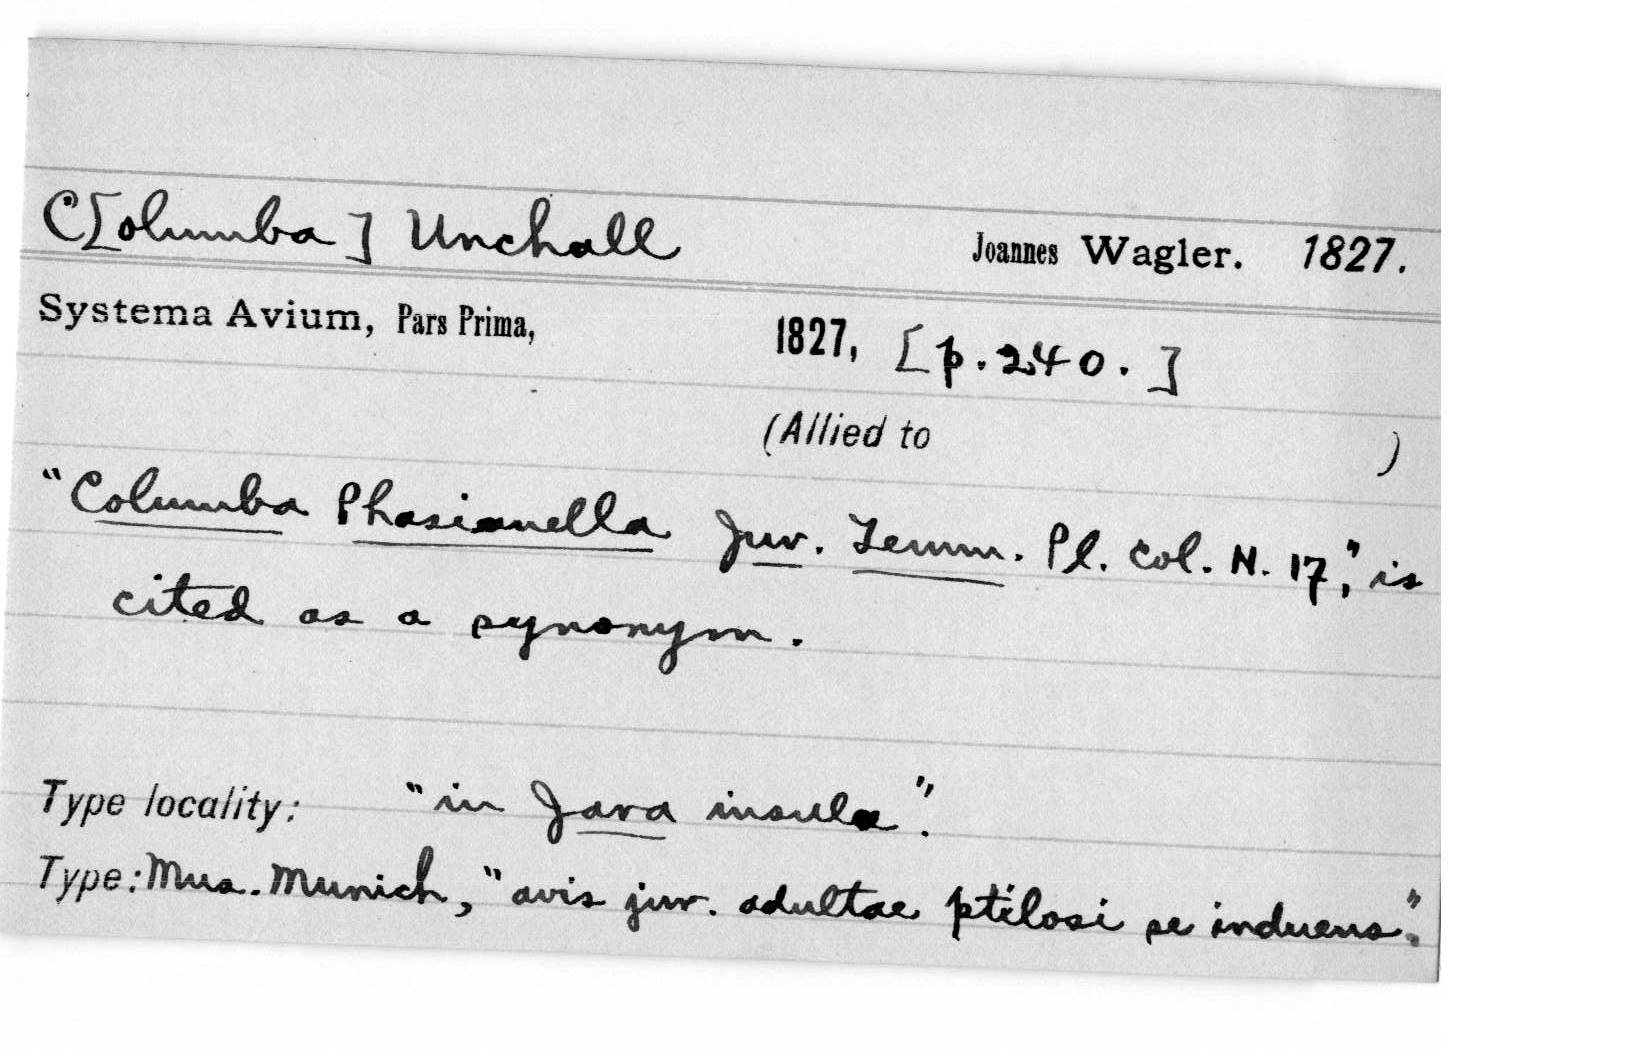 C[olumba] Unchall Joannes Wagler. 1827.
Systema Avium, Pars Prima, 1827, [p. 240.]
(Allied to )
"Columba Phasianella Juv. Temm. Pl. Col. N. 17," is
cited as a synonym.
Type locality: "in Java insula".
Type: Mus. Munich, "avis juv. adultae ptilosi se induens".